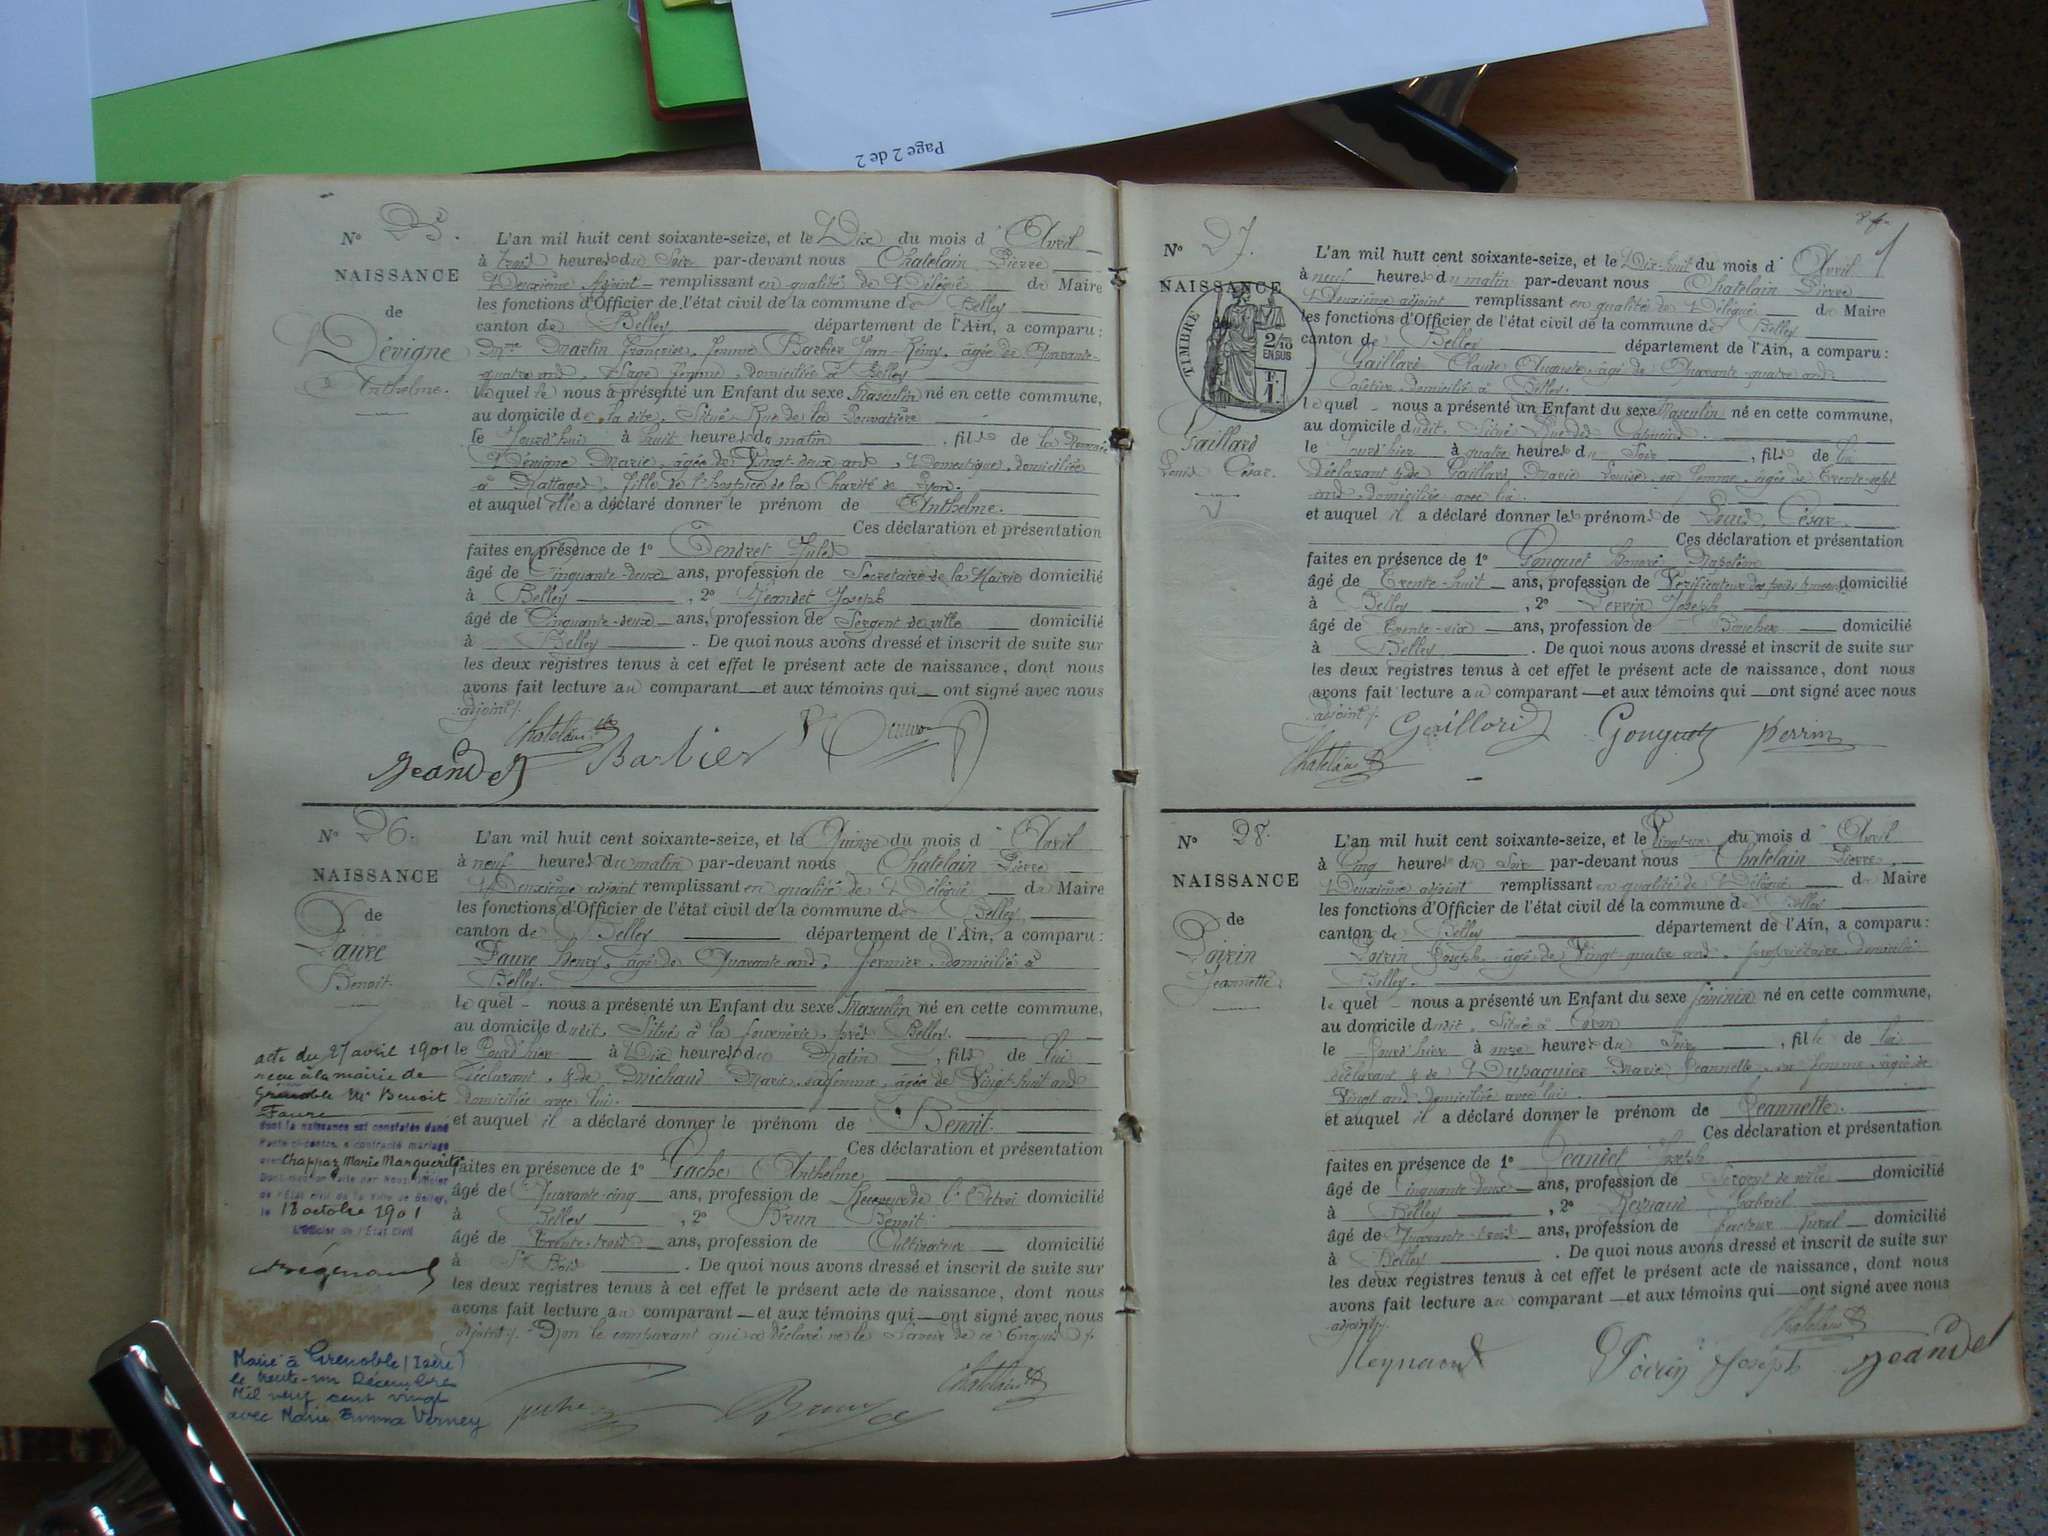 Page 2 de 2
N° 25.
NAISSANCE
de
Dévigne
Anthelme.
L'an mil huit cent soixante-seize, et le Dix du mois d'Avril
à trois heures du Soir par-devant nous Chatelain Pierre
Deuxième Adjoint remplissant en qualité de Délégué de Maire
les fonctions d'Officier de l'état civil de la commune de Belley
canton de Belley département de l'Ain, a comparu :
Mme Martin Françoise, femme Barbier Jean Rémy, âgée de Quarante-
quatre ans, Sage femme, domiciliée à Belley
laquelle nous a présenté un Enfant du sexe Masculin né en cette commune,
au domicile de la dite, Situé Rue de la
le Jourd'hui à huit heures du matin, fils de la
Dévigne Marie, âgée de Vingt-deux ans, Domestique, domiciliée
à Nattages, fille de l'hospice de la Charité de Lyon.
et auquel elle a déclaré donner le prénom de Anthelme.
Ces déclaration et présentation
faites en présence de 1° Tendret Jules
âgé de Cinquante-deux ans, profession de Secrétaire de la Mairie domicilié
à Belley, 2° Jeandet Joseph
âgé de Cinquante-deux ans, profession de Sergent de ville domicilié
à Belley. De quoi nous avons dressé et inscrit de suite sur
les deux registres tenus à cet effet le présent acte de naissance, dont nous
avons fait lecture au comparant et aux témoins qui ont signé avec nous
adjoint /.
Chatelain
Jeandet Barbier
N° 26.
NAISSANCE
de
Faure
Benoit.
L'an mil huit cent soixante-seize, et le Quinze du mois d'Avril
à neuf heures du matin par-devant nous Chatelain Pierre
Deuxième adjoint remplissant en qualité de Délégué de Maire
les fonctions d'Officier de l'état civil de la commune de Belley
canton de Belley département de l'Ain, a comparu :
Faure Henry, âgé de Quarante ans, fermier, domicilié à
Belley.
lequel nous a présenté un Enfant du sexe Masculin né en cette commune,
au domicile dudit, Situé à la, près Belley.
le Jourd'hier à Dix heures du Matin, fils de lui
Déclarant, & de Michaud Marie, sa femme, âgée de Vingt huit ans
domiciliée avec lui.
et auquel il a déclaré donner le prénom de Benoit.
Ces déclaration et présentation
faites en présence de 1° Gache Anthelme
âgé de Quarante-cinq ans, profession de Receveur de l'Octroi domicilié
à Belley, 2° Brun Benoit
âgé de Trente-trois ans, profession de Cultivateur domicilié
à St Bois. De quoi nous avons dressé et inscrit de suite sur
les deux registres tenus à cet effet le présent acte de naissance, dont nous
avons fait lecture au comparant et aux témoins qui ont signé avec nous
adjoint /. Non le comparant qui a déclaré ne le Savoir de ce Enquis /.
Chatelain
acte du 27 avril 1901
reçu à la mairie de
Grenoble Mr Benoit
Faure
dont la naissance est constatée dans
l'acte ci-contre, a contracté mariage
avec Chappaz Marie Marguerite
Dont mention faite par Nous, Officier
de l'État civil de la Ville de Belley,
le 18 octobre 1901
L'Officier de l'État Civil
Marié à Grenoble (Isère)
le trente-un Décembre
Mil neuf cent vingt
avec Marie Emma Verney
N° 27.
NAISSANCE
TIMBRE
2/10
EN SUS
Gaillard
Louis César.
L'an mil huit cent soixante-seize, et le Dix-huit du mois d'Avril
à neuf heures du matin par-devant nous Chatelain Pierre
Deuxième adjoint remplissant en qualité de Délégué de Maire
les fonctions d'Officier de l'état civil de la commune de Belley
canton de Belley département de l'Ain, a comparu :
Gaillard Claude Auguste, âgé de Quarante-quatre ans
domicilié à Belley.
lequel nous a présenté un Enfant du sexe Masculin né en cette commune,
au domicile dudit, Situé Rue des Capucins.
le Jourd'hier à quatre heures du Soir, fils de lui
déclarant & de Gaillard Marie Louise, sa femme, âgée de Trente-sept
ans, domiciliée avec lui.
et auquel il a déclaré donner les prénoms de Louis, César.
Ces déclaration et présentation
faites en présence de 1° Gonguet Honoré Napoléon
âgé de Trente-huit ans, profession de Vérificateur des poids & mesures domicilié
à Belley, 2° Perrin Joseph
âgé de Trente-six ans, profession de Boucher domicilié
à Belley. De quoi nous avons dressé et inscrit de suite sur
les deux registres tenus à cet effet le présent acte de naissance, dont nous
avons fait lecture au comparant et aux témoins qui ont signé avec nous
adjoint /.
Chatelain Gaillard Gonguet Perrin
N° 28.
NAISSANCE
de
Poirin
Jeannette
L'an mil huit cent soixante-seize, et le Vingt-un du mois d'Avril
à Cinq heures du Soir par-devant nous Chatelain Pierre
Deuxième adjoint remplissant en qualité de Délégué de Maire
les fonctions d'Officier de l'état civil de la commune de Belley
canton de Belley département de l'Ain, a comparu :
Poirin Joseph, âgé de Vingt-quatre ans, propriétaire, domicilié
Belley.
lequel nous a présenté un Enfant du sexe féminin né en cette commune,
au domicile dudit, Situé à
le Jourd'hier à onze heures du Soir, fille de lui
déclarant & de Dupasquier Marie Jeannette, sa femme, âgée de
Vingt ans, domiciliée avec lui.
et auquel il a déclaré donner le prénom de Jeannette.
Ces déclaration et présentation
faites en présence de 1° Jeandet Joseph
âgé de Cinquante-deux ans, profession de Sergent de ville domicilié
à Belley, 2° Reynaud Gabriel
âgé de Quarante-trois ans, profession de facteur Rural domicilié
à Belley. De quoi nous avons dressé et inscrit de suite sur
les deux registres tenus à cet effet le présent acte de naissance, dont nous
avons fait lecture au comparant et aux témoins qui ont signé avec nous
adjoint /.
Chatelain
Reynaud Poirin Joseph Jeandet